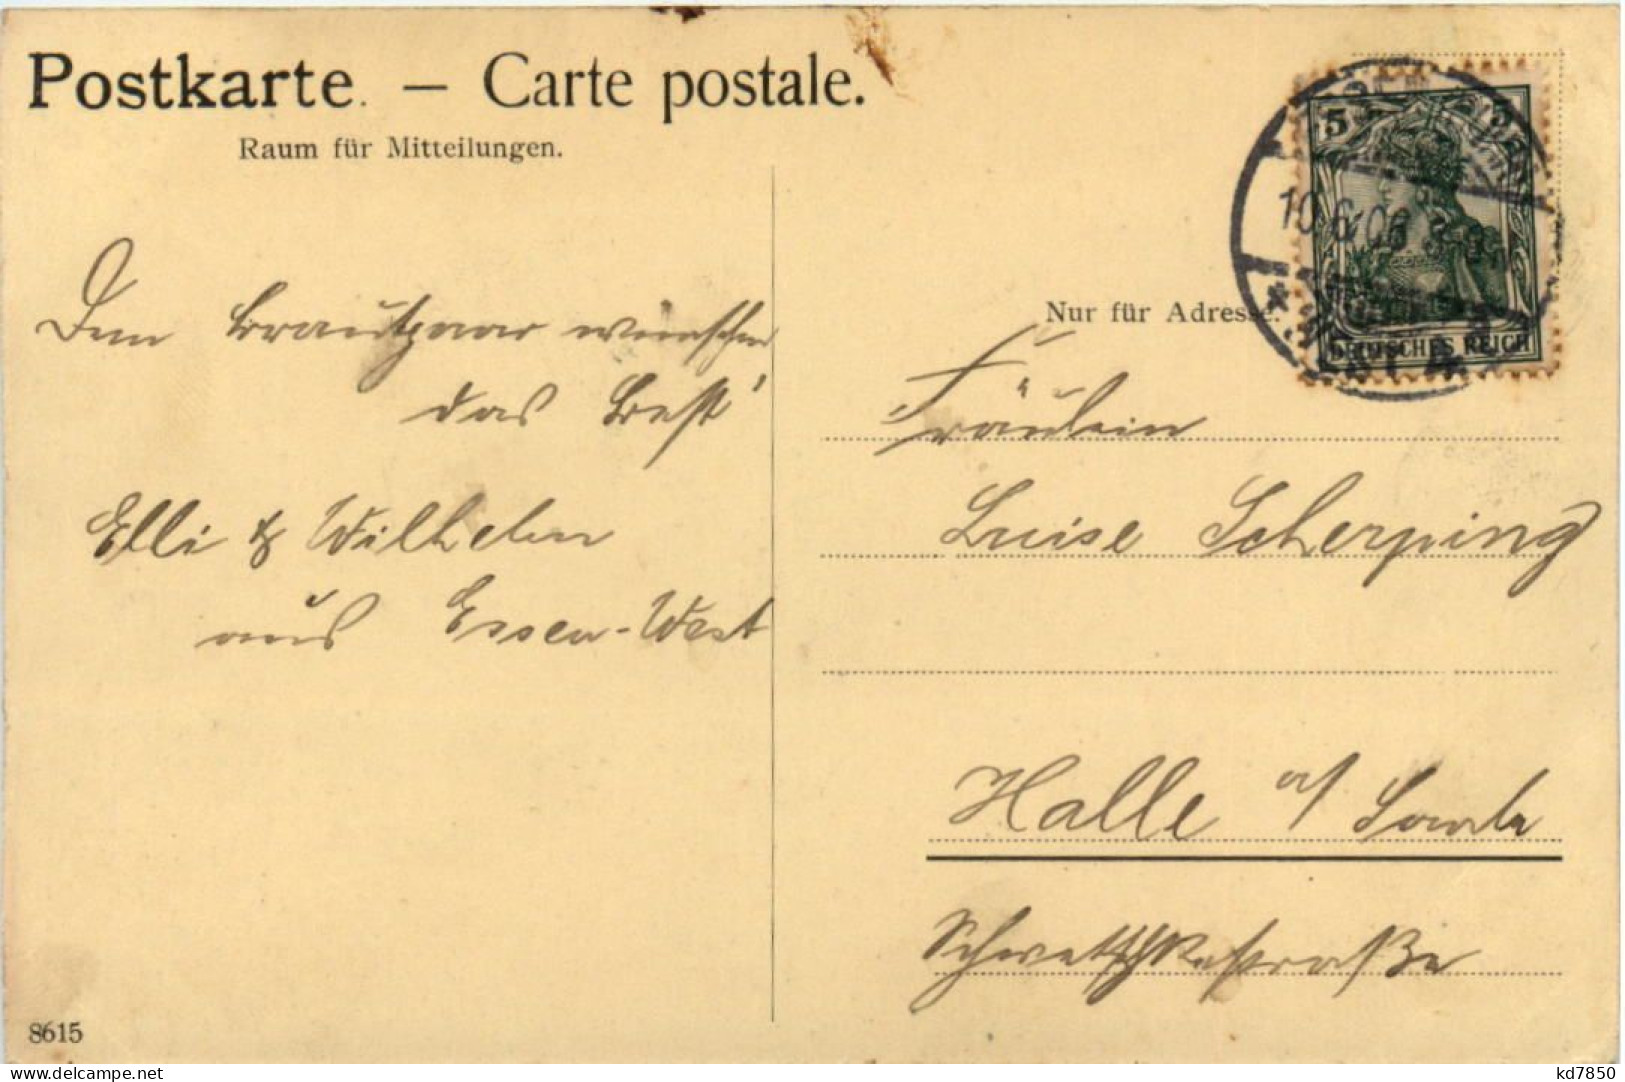 Postkarte. — Carte postale.
Raum für Mitteilungen.
Dem Brautpaar wünschen
das Best'
Elli & Wilhelm
aus Essen-West
5
10.6.06
DEUTSCHES REICH
Nur für Adresse.
Fräulein
Luise Scherping
Halle a/ Saale
Schwetschkestraße
8615
kd7850